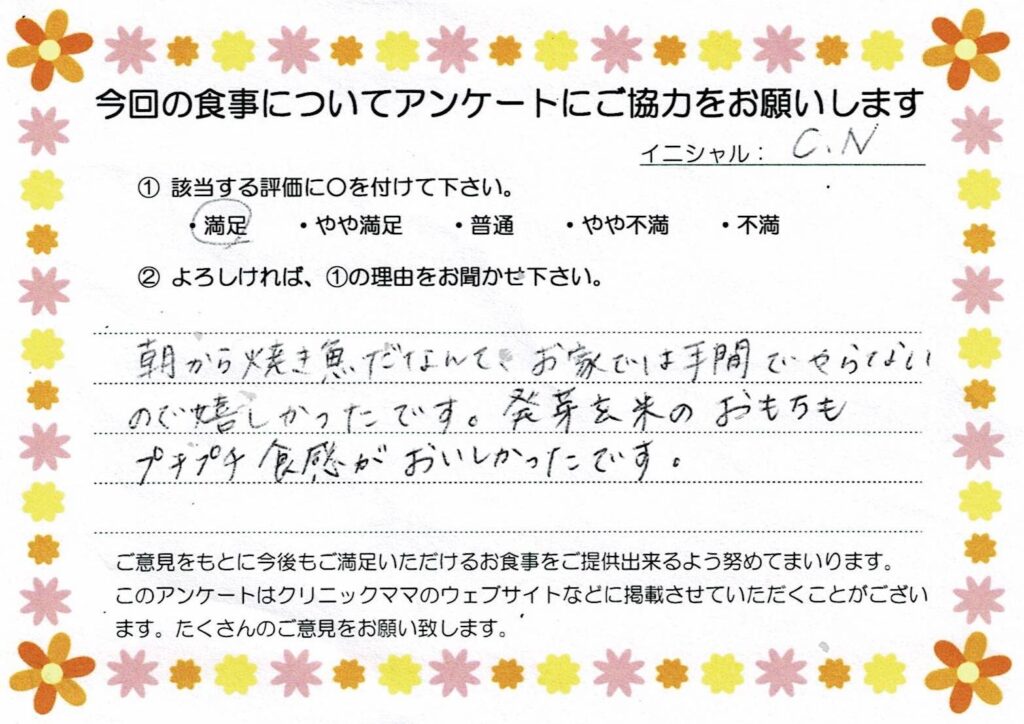 今回の食事についてアンケートにご協力をお願いします
イニシャル： C.N
① 該当する評価に〇を付けて下さい。
・満足 ・やや満足 ・普通 ・やや不満 ・不満
② よろしければ、①の理由をお聞かせ下さい。
朝から焼き魚だなんて、お家では手間でやらない
ので嬉しかったです。発芽玄米のおもちも
プチプチ食感がおいしかったです。
ご意見をもとに今後もご満足いただけるお食事をご提供出来るよう努めてまいります。
このアンケートはクリニックママのウェブサイトなどに掲載させていただくことがござい
ます。たくさんのご意見をお願い致します。